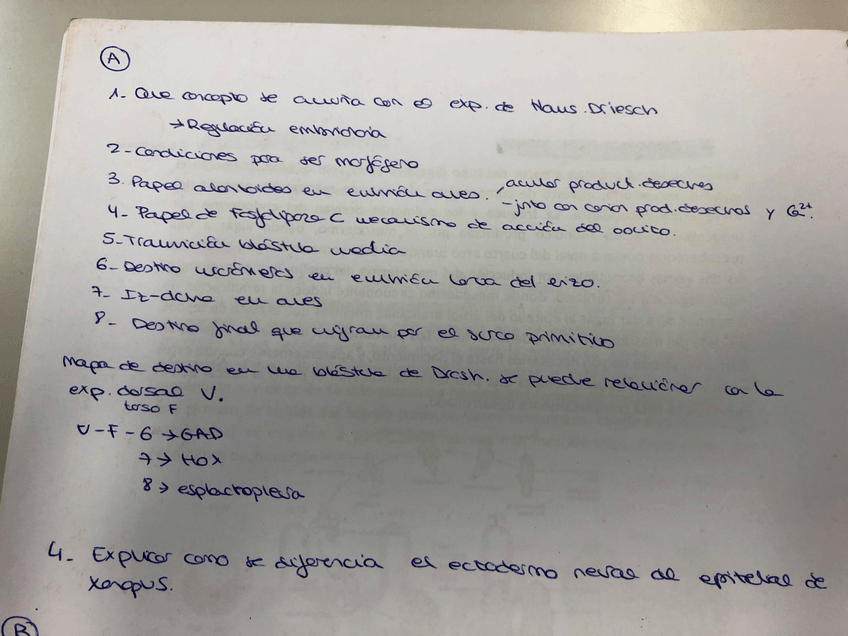 A
1- Que concepto se acuña con el exp. de Hans. Driesch
→ Regulación embrionaria
2- Condiciones para ser morfógeno
3. Papel alantoides en embrión aves. , acular product. desechos
- jnto con corion prod. desechos y Ca²⁺.
4- Papel de Fosfolipasa C mecanismo de acción del oocito.
5- Transición blástula media
6- Destino micrómeros en embrión larva del erizo.
7- Iz-dcha en aves
8- Destino final que migran por el surco primitivo
Mapa de destino en una blástula de Drsh. se puede relacionar con la
exp. dorsal V.
toso F
V-F-6 → GAD
7 → HOX
8 → esplacnopleura
4- Explicar como se diferencia el ectodermo neural del epitelial de
Xenopus.
B